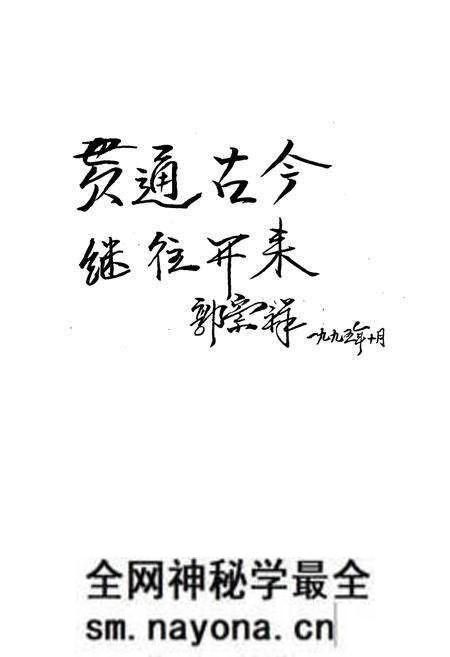 贯通古今
继往开来
郭宗祥 一九九五年十月
全网神秘学最全
sm.nayona.cn